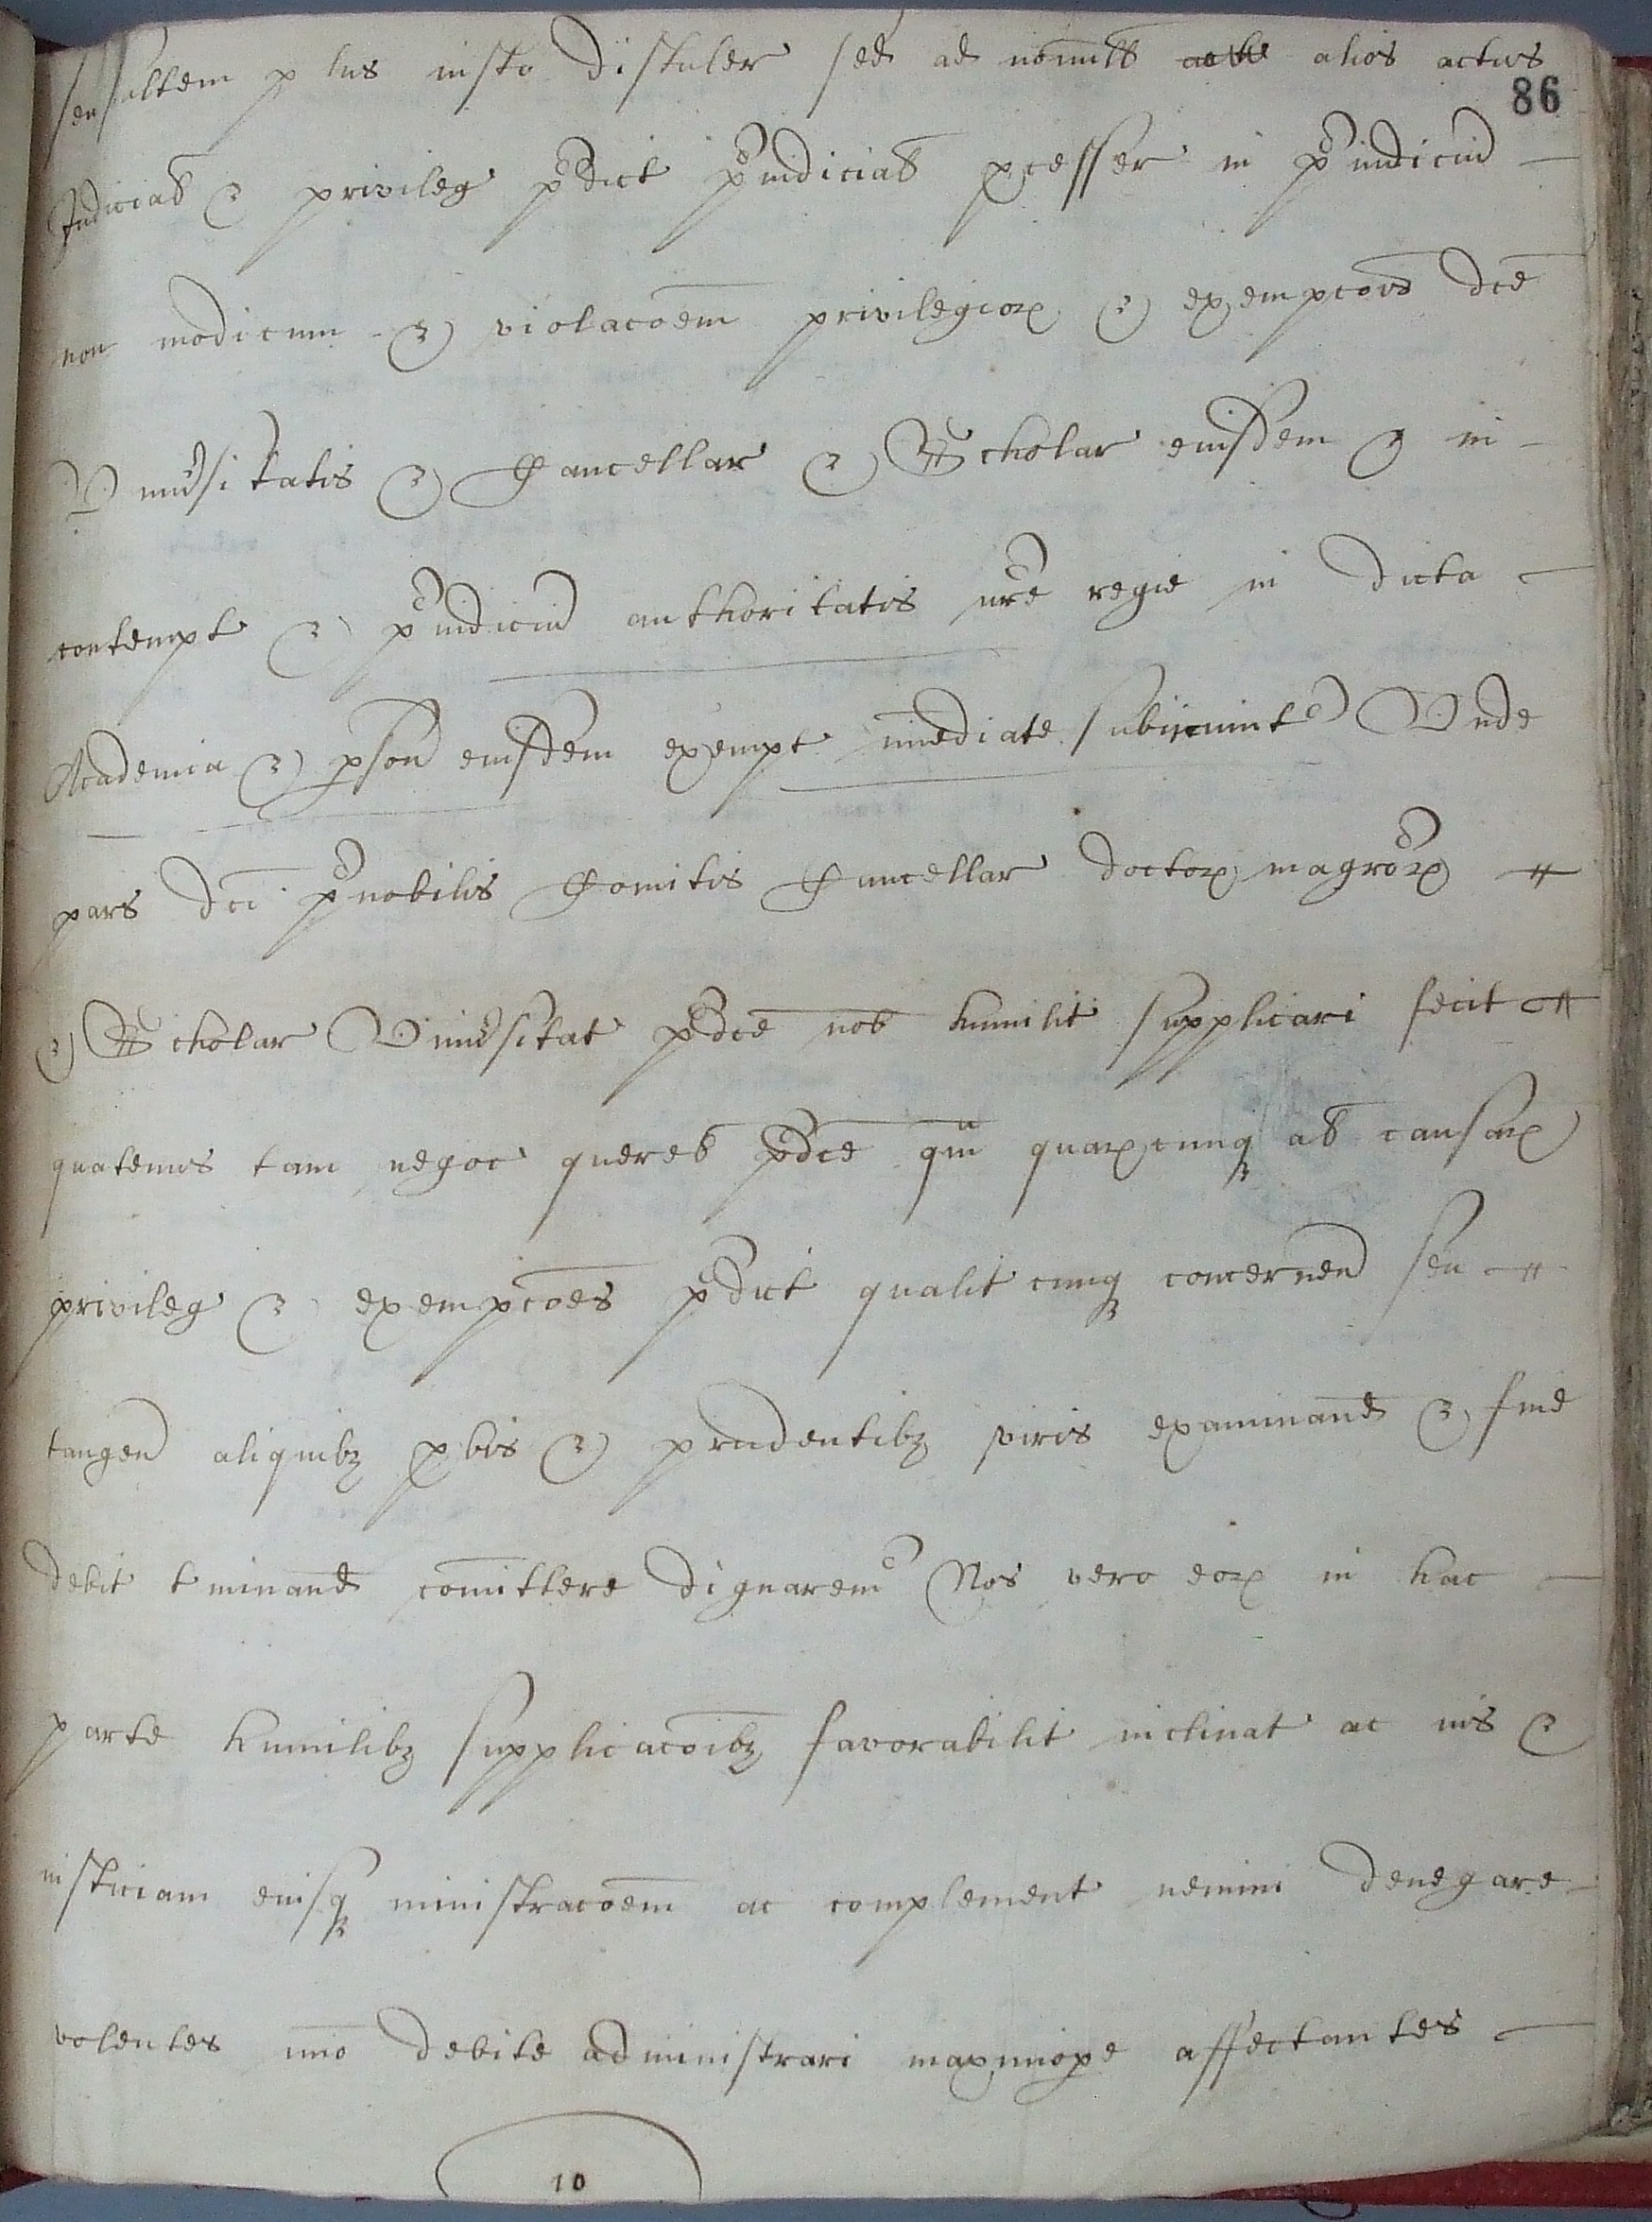 seu saltem p lus iusto distuler sed ad nonnull alios actus
86
Judicial & privileg pdict piudicial pcesser in piudiciu
non modicum & violacoem privilegior & exempcois dce
Univsitatis & Cancellar & Scholar eiusdem & in
contempt & piudiciu authoritatis nre regie in dicta
Academia & pson eiusdem exempt imediate subijciunt Unde
pars dci pnobilis Comitis Cancellar doctor magror
& Scholar Univsitat pdce nob humilit supplicari fecit
quatenus tam negoc querel pdce qm quarcunq al causar
privileg & exempcoes pdict qualit cunq concernen seu
tangen aliquibz pbis & prudentibz viris examinand & fine
debit tminand comittere dignarem Nos vero eor in hac
parte humilibz supplicacoibz favorabilit inclinat ac ius &
iusticiam eiusq ministracoem ac complement nemini denegare
volentes imo debite administrari maximope affectantes
10